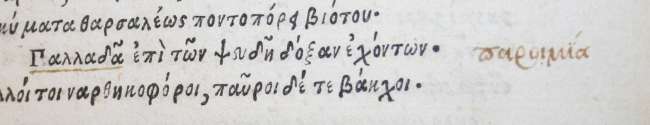 κύματα θαρσαλέως ποντοπόρει βιότου·
Παλλαδᾶ ἐπὶ τῶν ψευδῆ δόξαν ἐχόντων· παροιμία
λλοί τοι ναρθηκοφόροι, παῦροι δέ τε βάκχοι·